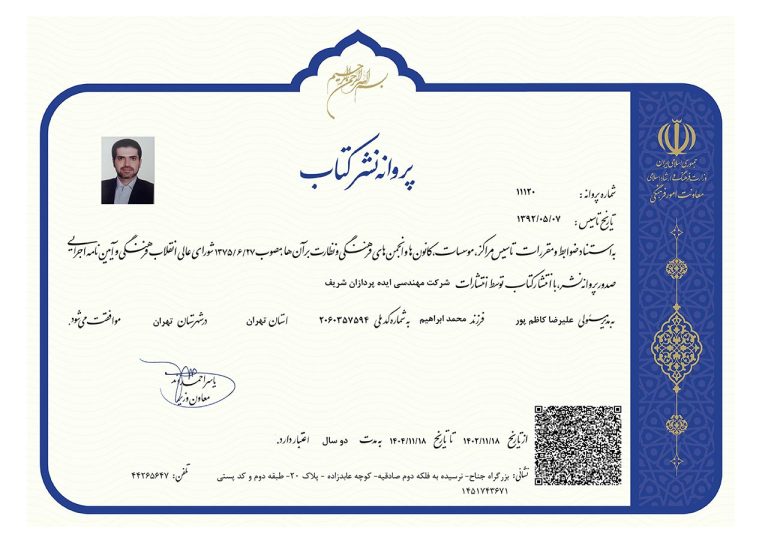 بسم الله الرحمن الرحیم
جمهوری اسلامی ایران
وزارت فرهنگ و ارشاد اسلامی
معاونت امور فرهنگی
پروانه نشر کتاب
شماره پروانه : ۱۱۱۲۰
تاریخ تاسیس : ۱۳۹۲/۰۵/۰۷
به استناد ضوابط و مقررات تاسیس مراکز، موسسات، کانون ها و انجمن های فرهنگی و نظارت بر آن ها، مصوب ۱۳۷۵/۶/۲۷ شورای عالی انقلاب فرهنگی و آیین نامه اجرایی
صدور پروانه نشر، با انتشار کتاب توسط انتشارات شرکت مهندسی ایده پردازان شریف
به مدیر مسئولی علیرضا کاظم پور فرزند محمد ابراهیم به شماره کد ملی ۲۰۶۰۳۵۷۵۹۴ استان تهران در شهرستان تهران موافقت می شود.
یاسر احمدوند
معاون وزیر
از تاریخ ۱۴۰۲/۱۱/۱۸ تا تاریخ ۱۴۰۴/۱۱/۱۸ به مدت دو سال اعتبار دارد.
نشانی: بزرگراه جناح- نرسیده به فلکه دوم صادقیه- کوچه عابدزاده - پلاک ۲۰- طبقه دوم و کد پستی ۱۴۵۱۷۴۳۶۷۱ تلفن: ۴۴۲۶۵۶۴۷